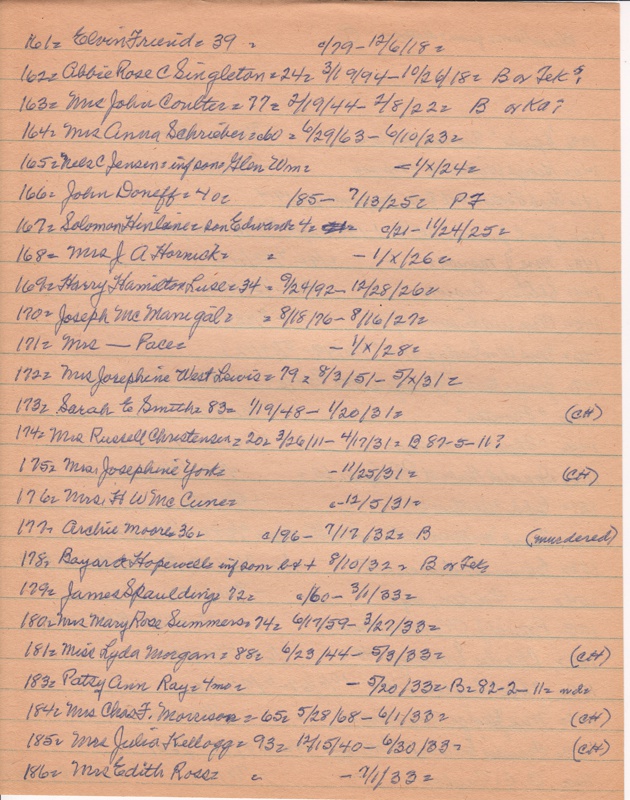 161= Elvin Friend= 39 = c/79- 12/6/18=
162= Abbie Rose C Singleton= 24= 3/19/94- 10/26/18= B or Tek?
163= Mrs John Coulter= 77= 2/19/44- 2/8/22= B or Ka?
164= Mrs Anna Schrieber= 60= 6/29/63- 6/10/23=
165= Nels C Jensen= inf son= Glen Wm= = 1/x/24=
166= John Doneff= 40= /85- 7/13/25= PF
167= Solomon = son Edward= 4= c/21- 11/24/25=
168= Mrs J A Hornick= = - 1/x/26=
169= Harry Hamilton Luse= 34= 9/24/92- 12/28/26=
170= Joseph McManigal= = 8/18/76- 8/16/27=
171= Mrs — Pace= - 1/x/28=
172= Mrs Josephine West Lewis= 79= 8/3/51- 5/x/31=
173= Sarah E Smith= 83= 1/19/48- 1/20/31= (CH)
174= Mrs Russell Christensen= 20= 3/26/11- 4/17/31= B 87-5-11?
175= Mrs. Josephine York= - 11/25/31= (CH)
176= Mrs. H W McCune= =-12/5/31=
177= Archie Moore= 36= c/96- 7/17/32= B (murdered)
178= Bayard Hopewell= inf son= b+ + 8/10/32= B or Tek=
179= James Spaulding= 72= c/60- 3/1/33=
180= Mrs Mary Rose Summers= 74= 6/17/59- 3/27/33=
181= Miss Lyda Morgan= 88= 6/23/44- 5/3/33= (CH)
183= Patsy Ann Ray= 4mo= - 5/20/33= B= 82-2-11= nd=
184= Mrs Chas F. Morrison= 65= 5/28/68- 6/1/33= (CH)
185= Mrs Julia Kellogg= 93= 12/15/40- 6/30/33= (CH)
186= Mrs Edith Ross= = - 7/1/33=